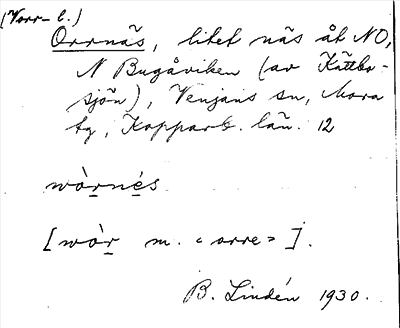 (Vorr- l.)
Orrnäs, litet näs åt NO,
N Bugåviken (av Kättbo-
sjön), Venjans sn, Mora
tg, Kopparb. län. 12
wòrnés
[wòr m. "orre"].
B. Lindén 1930.